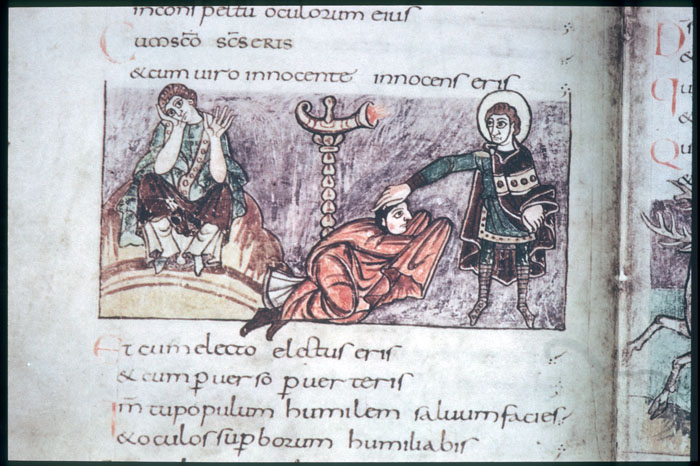 inconspectu oculorum eius
Cumsc̄o sc̄seris
&cum uiro innocente innocens eris
Et cum electo electus eris
&cum peruerso peruerteris
Qm̄ tu populum humilem saluum facies
&oculos superborum humiliabis
D
q
u
&
Q